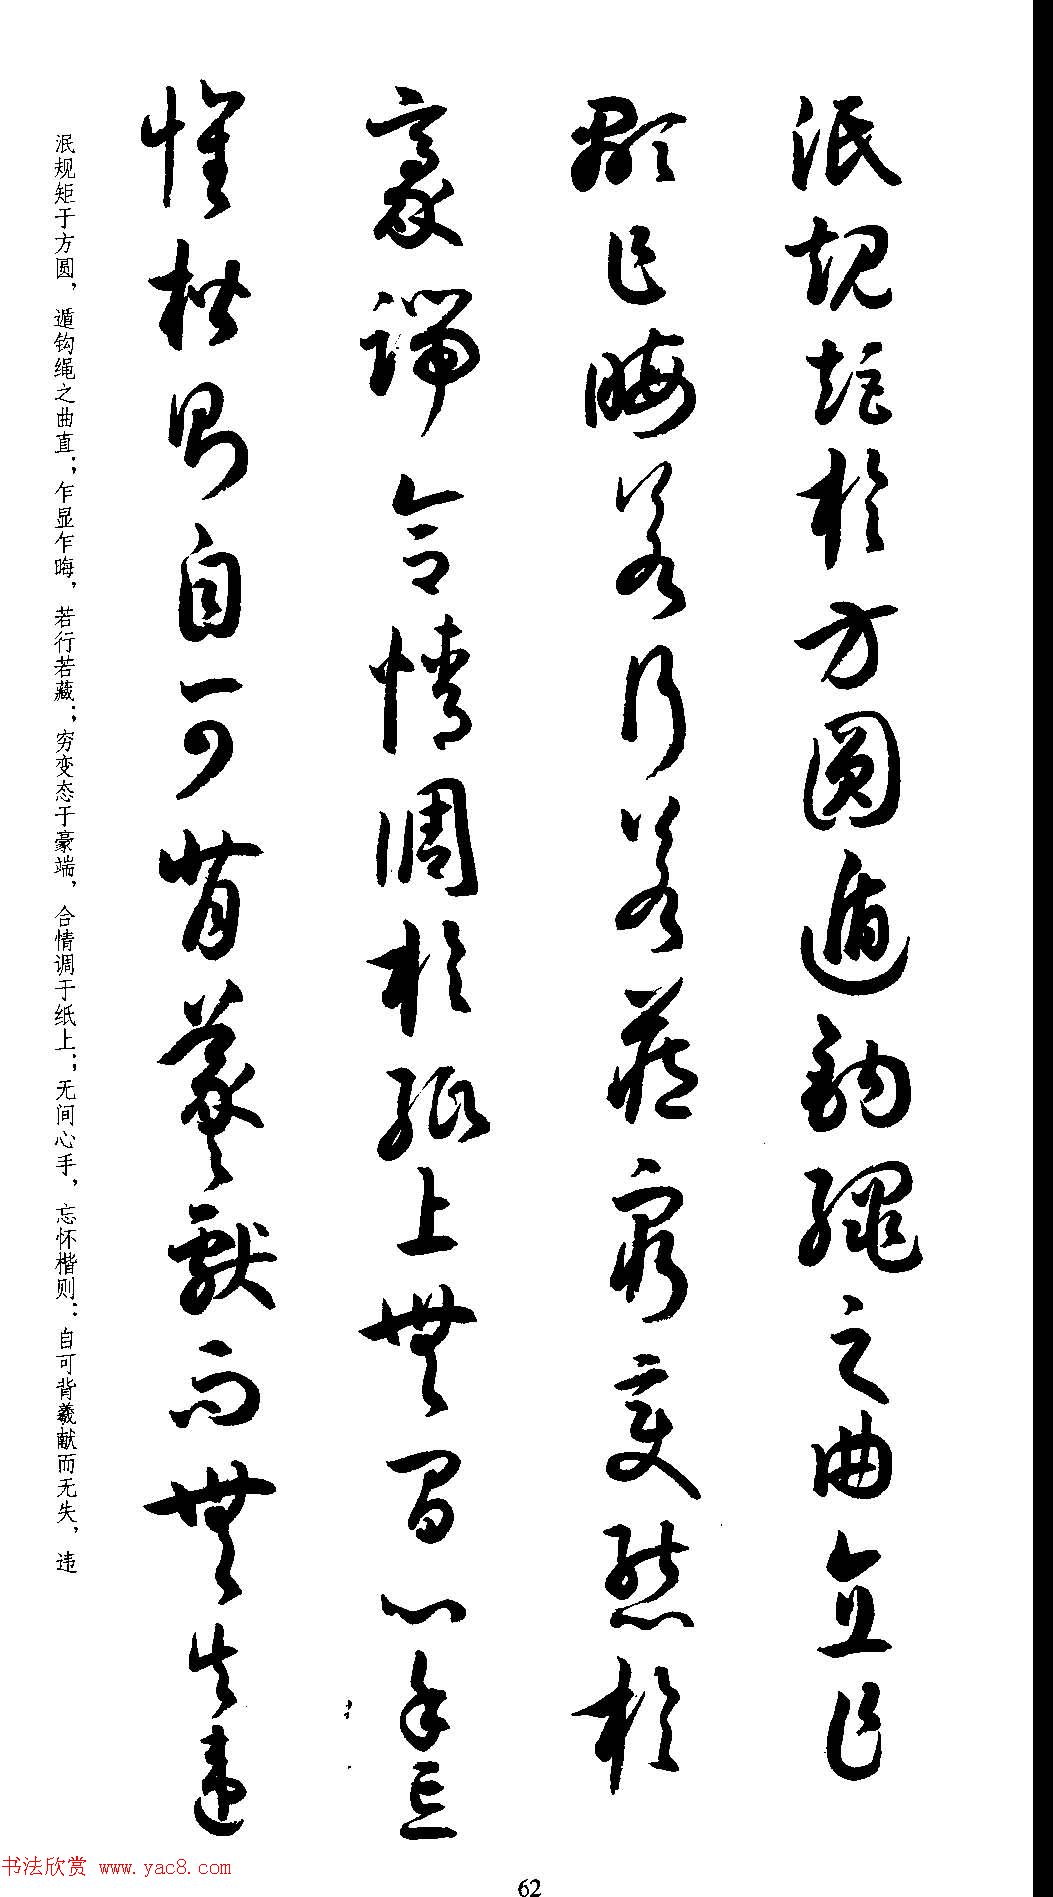 泯規矩於方圓遁鉤繩之曲直乍
顯乍晦若行若藏窮變態於
豪端合情調於紙上無間心手忘
懷楷則自可背羲獻而無失違
泯规矩于方圆，遁钩绳之曲直；乍显乍晦，若行若藏；穷变态于豪端，合情调于纸上；无间心手，忘怀楷则：自可背羲献而无失，违
书法欣赏 www.yac8.com
62